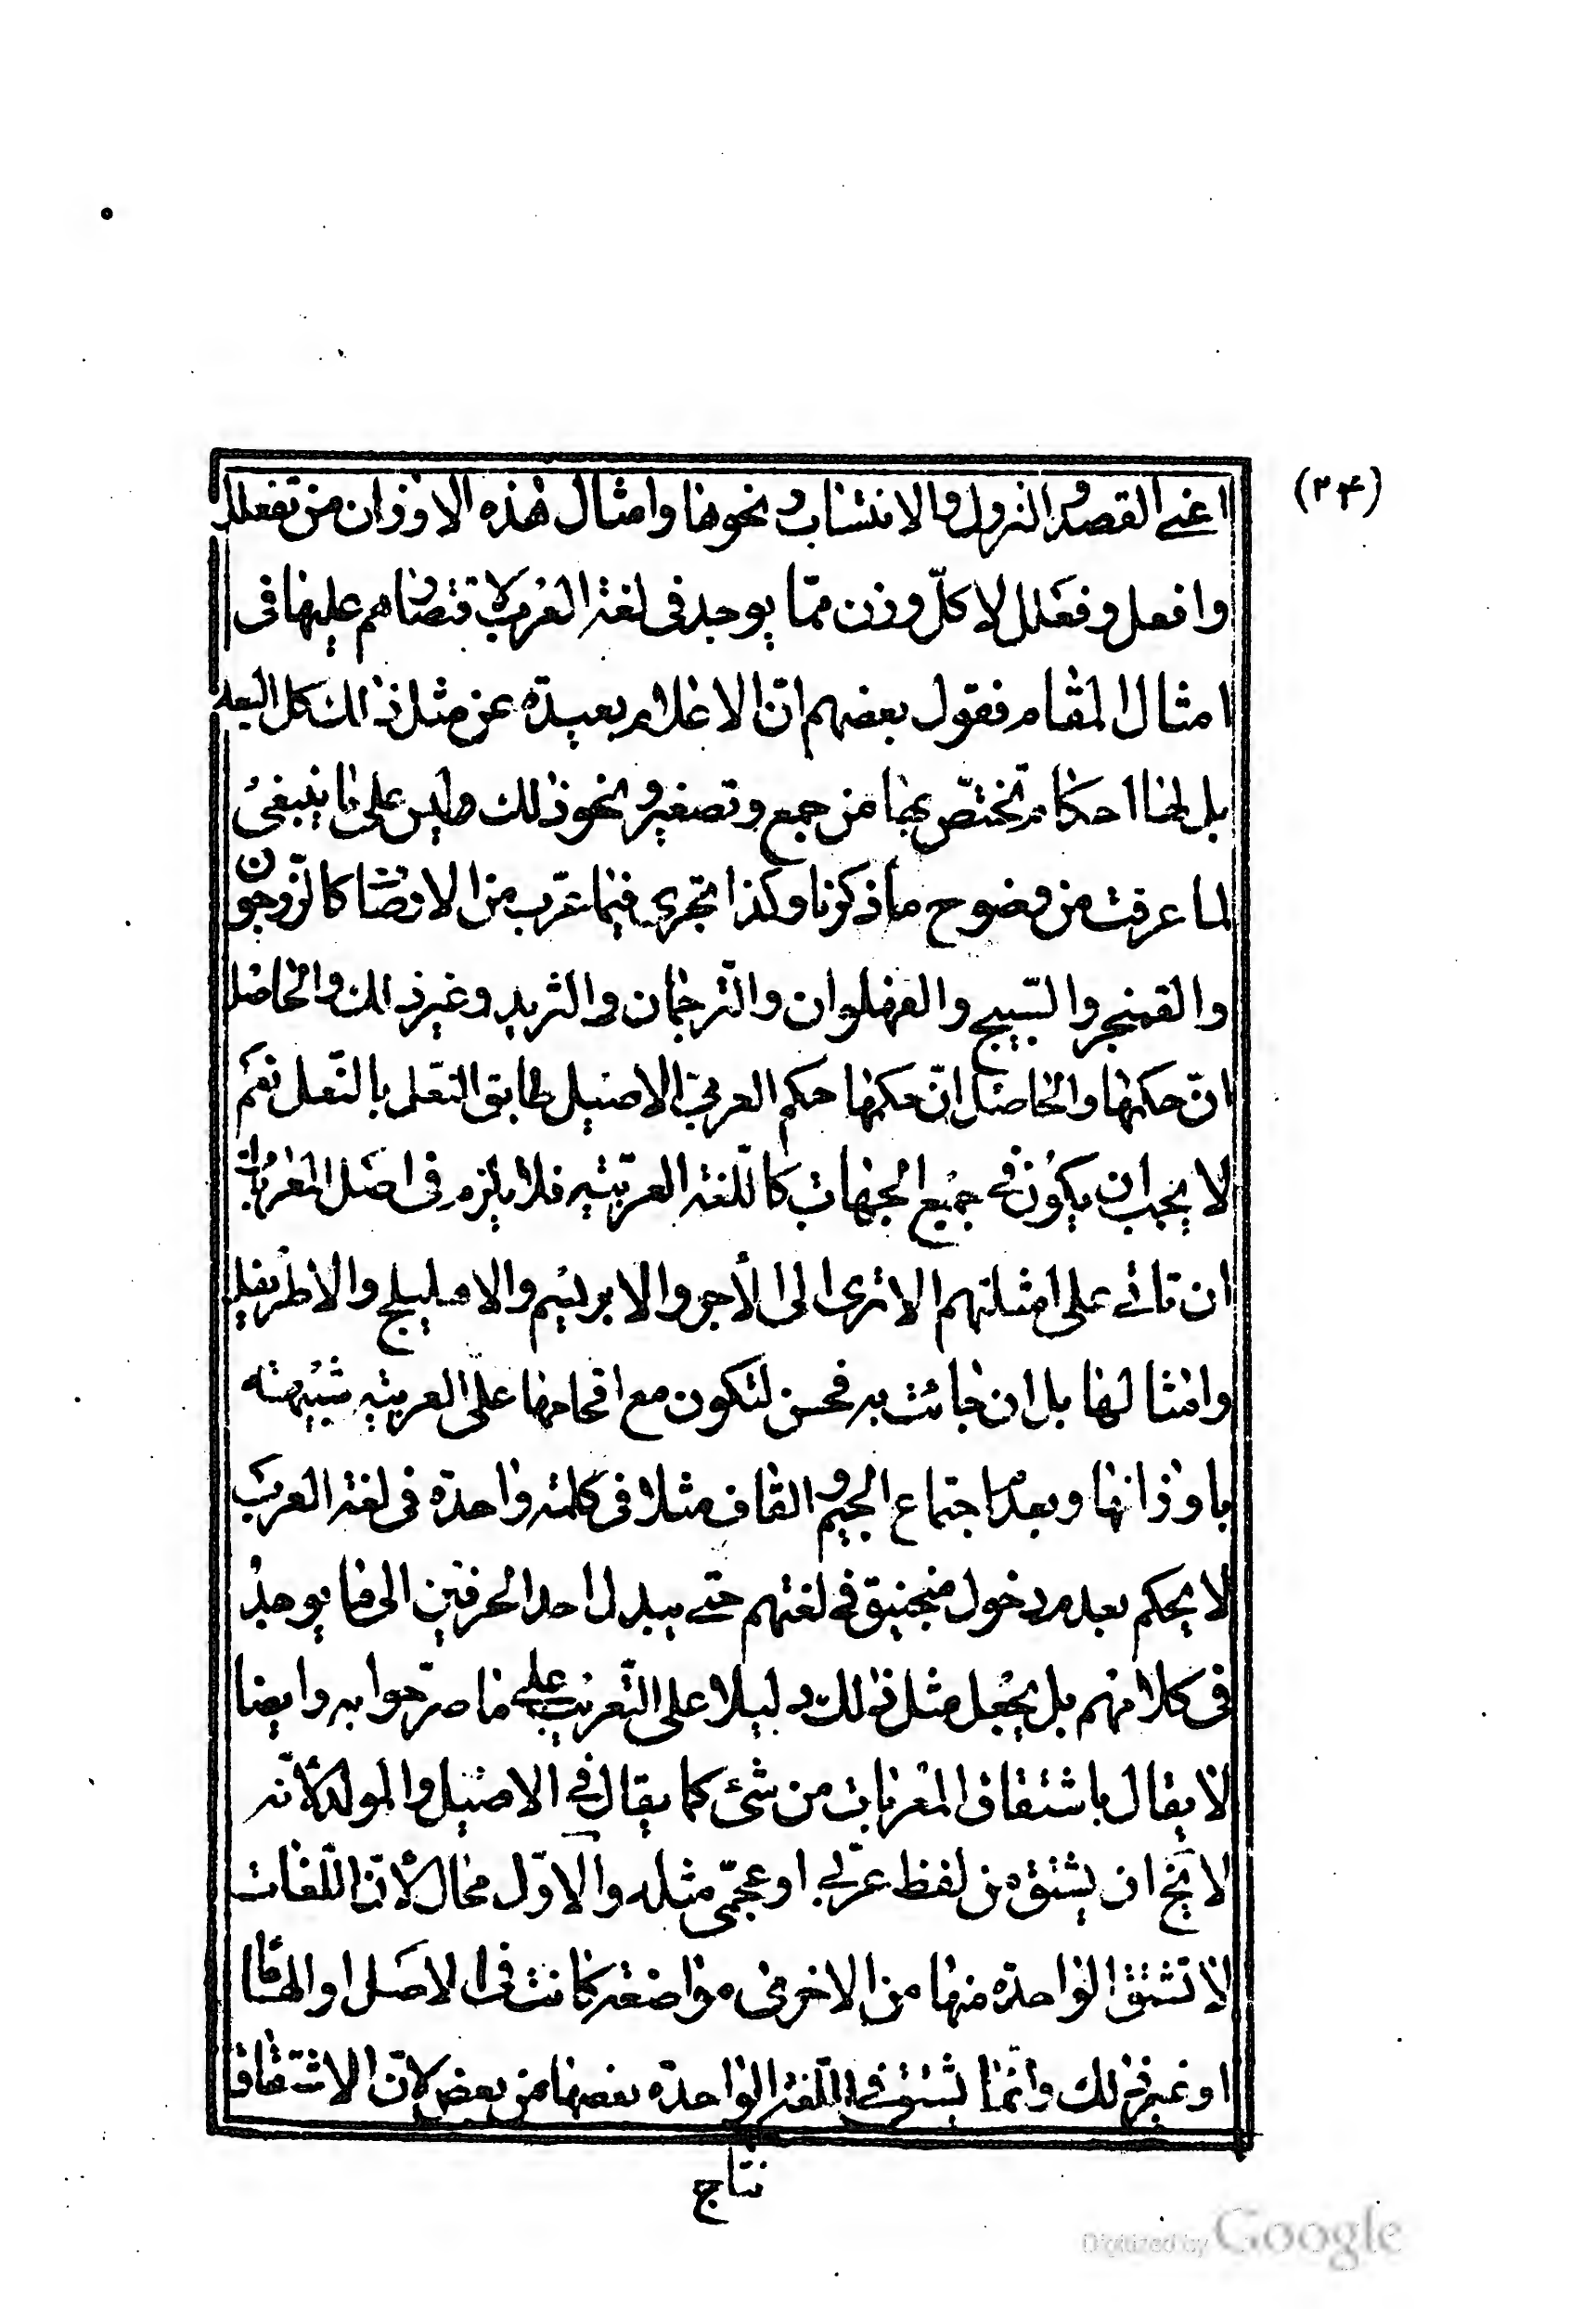 (٣۴)
اعنى القصد والنزول والانتساب ونحوها وامثال هذه الاوزان من تفعلل
وافعل وفعلل لا كلّ وزن ممّا يوجد فى لغة العرب لاقتصارهم عليها فى
امثال المقام فقول بعضهم انّ الاعلام بعيدة عن مثل ذالك كل البعد
بل لها احكام تختصّ بها من جمع وتصغير ونحو ذلك وليس على ما ينبغى
لما عرفت من وضوح ما ذكرنا وكذا تجرى فيما عرّب من الاوصاف كالزّرجون
والقمنجر والسّبيج والفهلوان والتّرجمان والثريد وغير ذالك والحاصل
انّ حكمها والحاصل انّ حكمها حكم العربىّ الاصيل طابق النّعل بالنّعل نعم
لا يجب ان يكون فى جميع الجهات كاللّغة العربّية فلا يلزم فى اصل المعربات
ان تاتى على امثلتهم الا ترى الى الأجر والابريسم والاهليلج والاطريفل
وامثالها بل ان جائت به فحسن لتكون مع اقحامها على العربية شبيهته
باوزانها وبعد اجتماع الجيم والقاف مثلا فى كلمة واحدة فى لغة العرب
لا يحكم بعدم دخول منجنيق فى لغتهم حتى يبدل احد الحرفين الى ما يوجد
فى كلامهم بل يجعل مثل ذلك دليلا على التّعريب على ما صرّحوا به وايضا
لا يقال باشتقاق المعربات من شئ كما يقال فى الاصيل والمولد لأنّه
لا يخ ان يشتق من لفظ عربى او عجمّى مثله والاوّل محال لأنّ اللّغات
لا تشتق الواحدة منها من الاخرى مواضعة كانت فى الاصل او الهاما
او غير ذلك وانّما يشتق فى اللّغة الواحدة بعضها من بعض لانّ الاشتقاق
نتاج
Digitized by Google